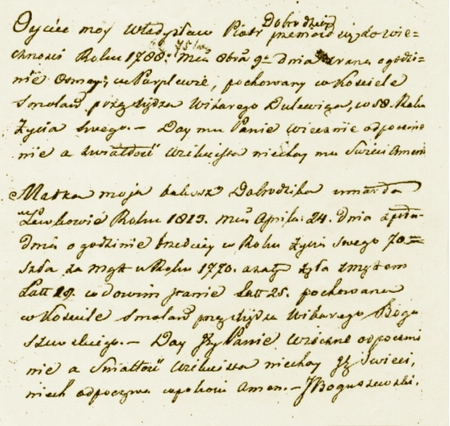 Oyciec moy Władysław Piotr Dobrodziey przeniosł się do wie-
czności Roku 1788. Mca 8bra 9. Dnia z rana o godzi-
nie osmey, w Puryszewie, pochowany w Kosciele
Smolań. przez Xiędza Wikarego Dulewicza, w 58. Roku
Życia swego. – Day mu Panie wieczne odpoczno-
nie a swiatłość wiekuista niechay mu Swieci Amen
Matka moja Dobrodzika umarła
w Roku 1813. Mca Aprila 24. Dnia z połu-
dnia o godzinie trzeciey w Roku życia Swego 70
Szła za mąż w Roku 1770. a żyła z mężem
Latt 19. w dowim stanie latt 25. pochowana
w Kosciele Smolań. przez Xiędza Wikarego Bogu
szewskiego. – Day Jey Panie wieczne odpoczni
nie a Swiatłość wiekuista niechay Jey Swieci,
niech odpoczywa w pokoiu Amen. – J Boguszewski.